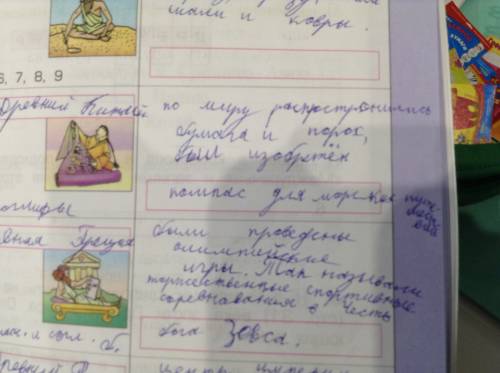 шали и ковры.
6, 7, 8, 9
Древний Китай
по миру распространились
бумага и порох,
был изобретён
компас для морских путешествий
роглифы
вняя Греция
были проведены
олимпийские
игры. Так называли
торжественные спортивные
соревнования в честь
бога Зевса.
глас. и согл. б.
ревний Р
центр империи